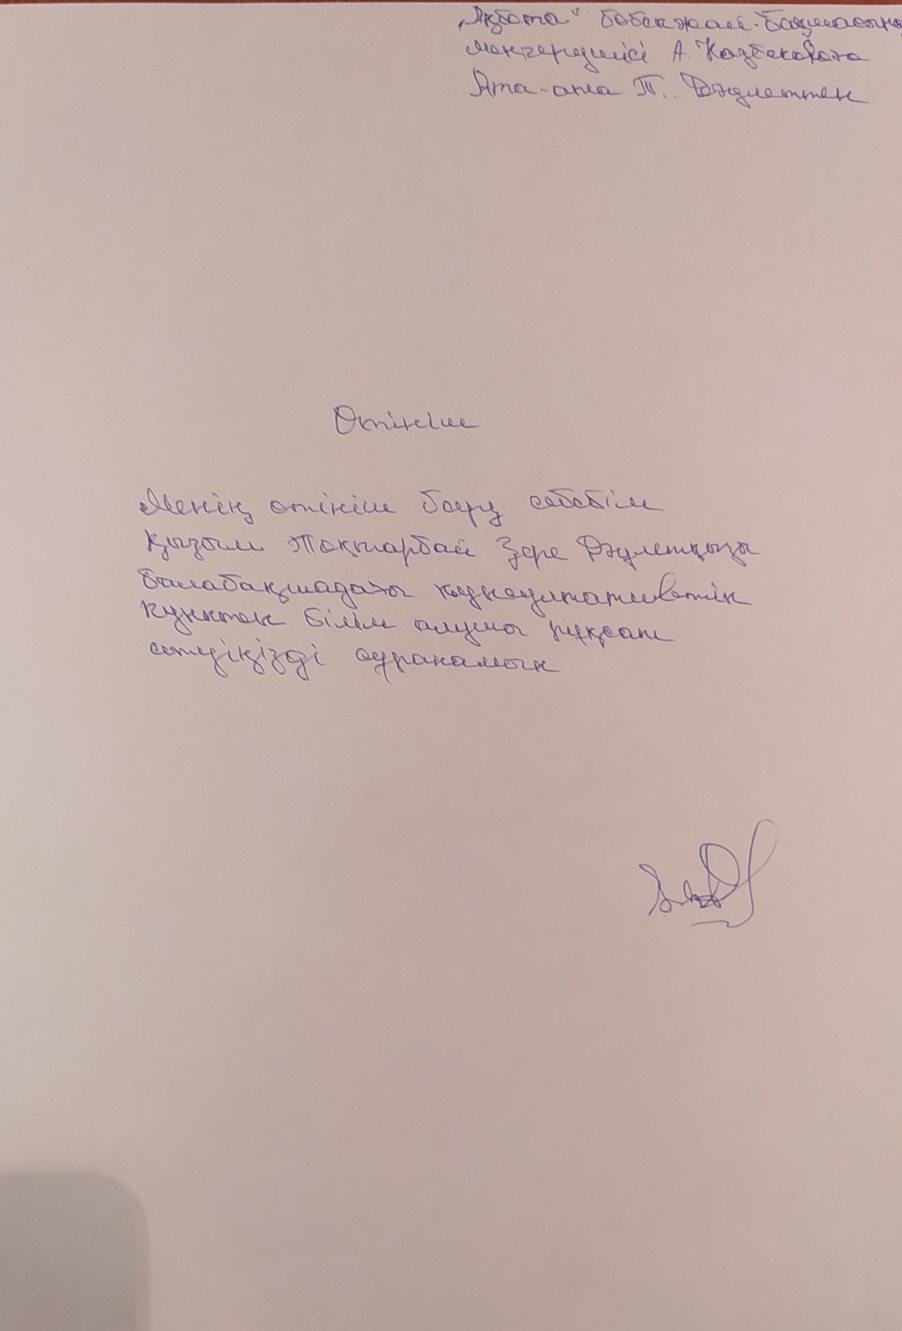 „Ақбота“ бөбекжай-бақшасының
меңгерушісі А. Казбековаға
Ата-ана Т.. Дәулеттен
Өтініш
Менің өтініш беру себебім
қызым Тоқтарбай Зере Дәулетқызы
балабақшадағы консультативтік
пунктте білім алуына рұқсат
етуіңізді сұранамын